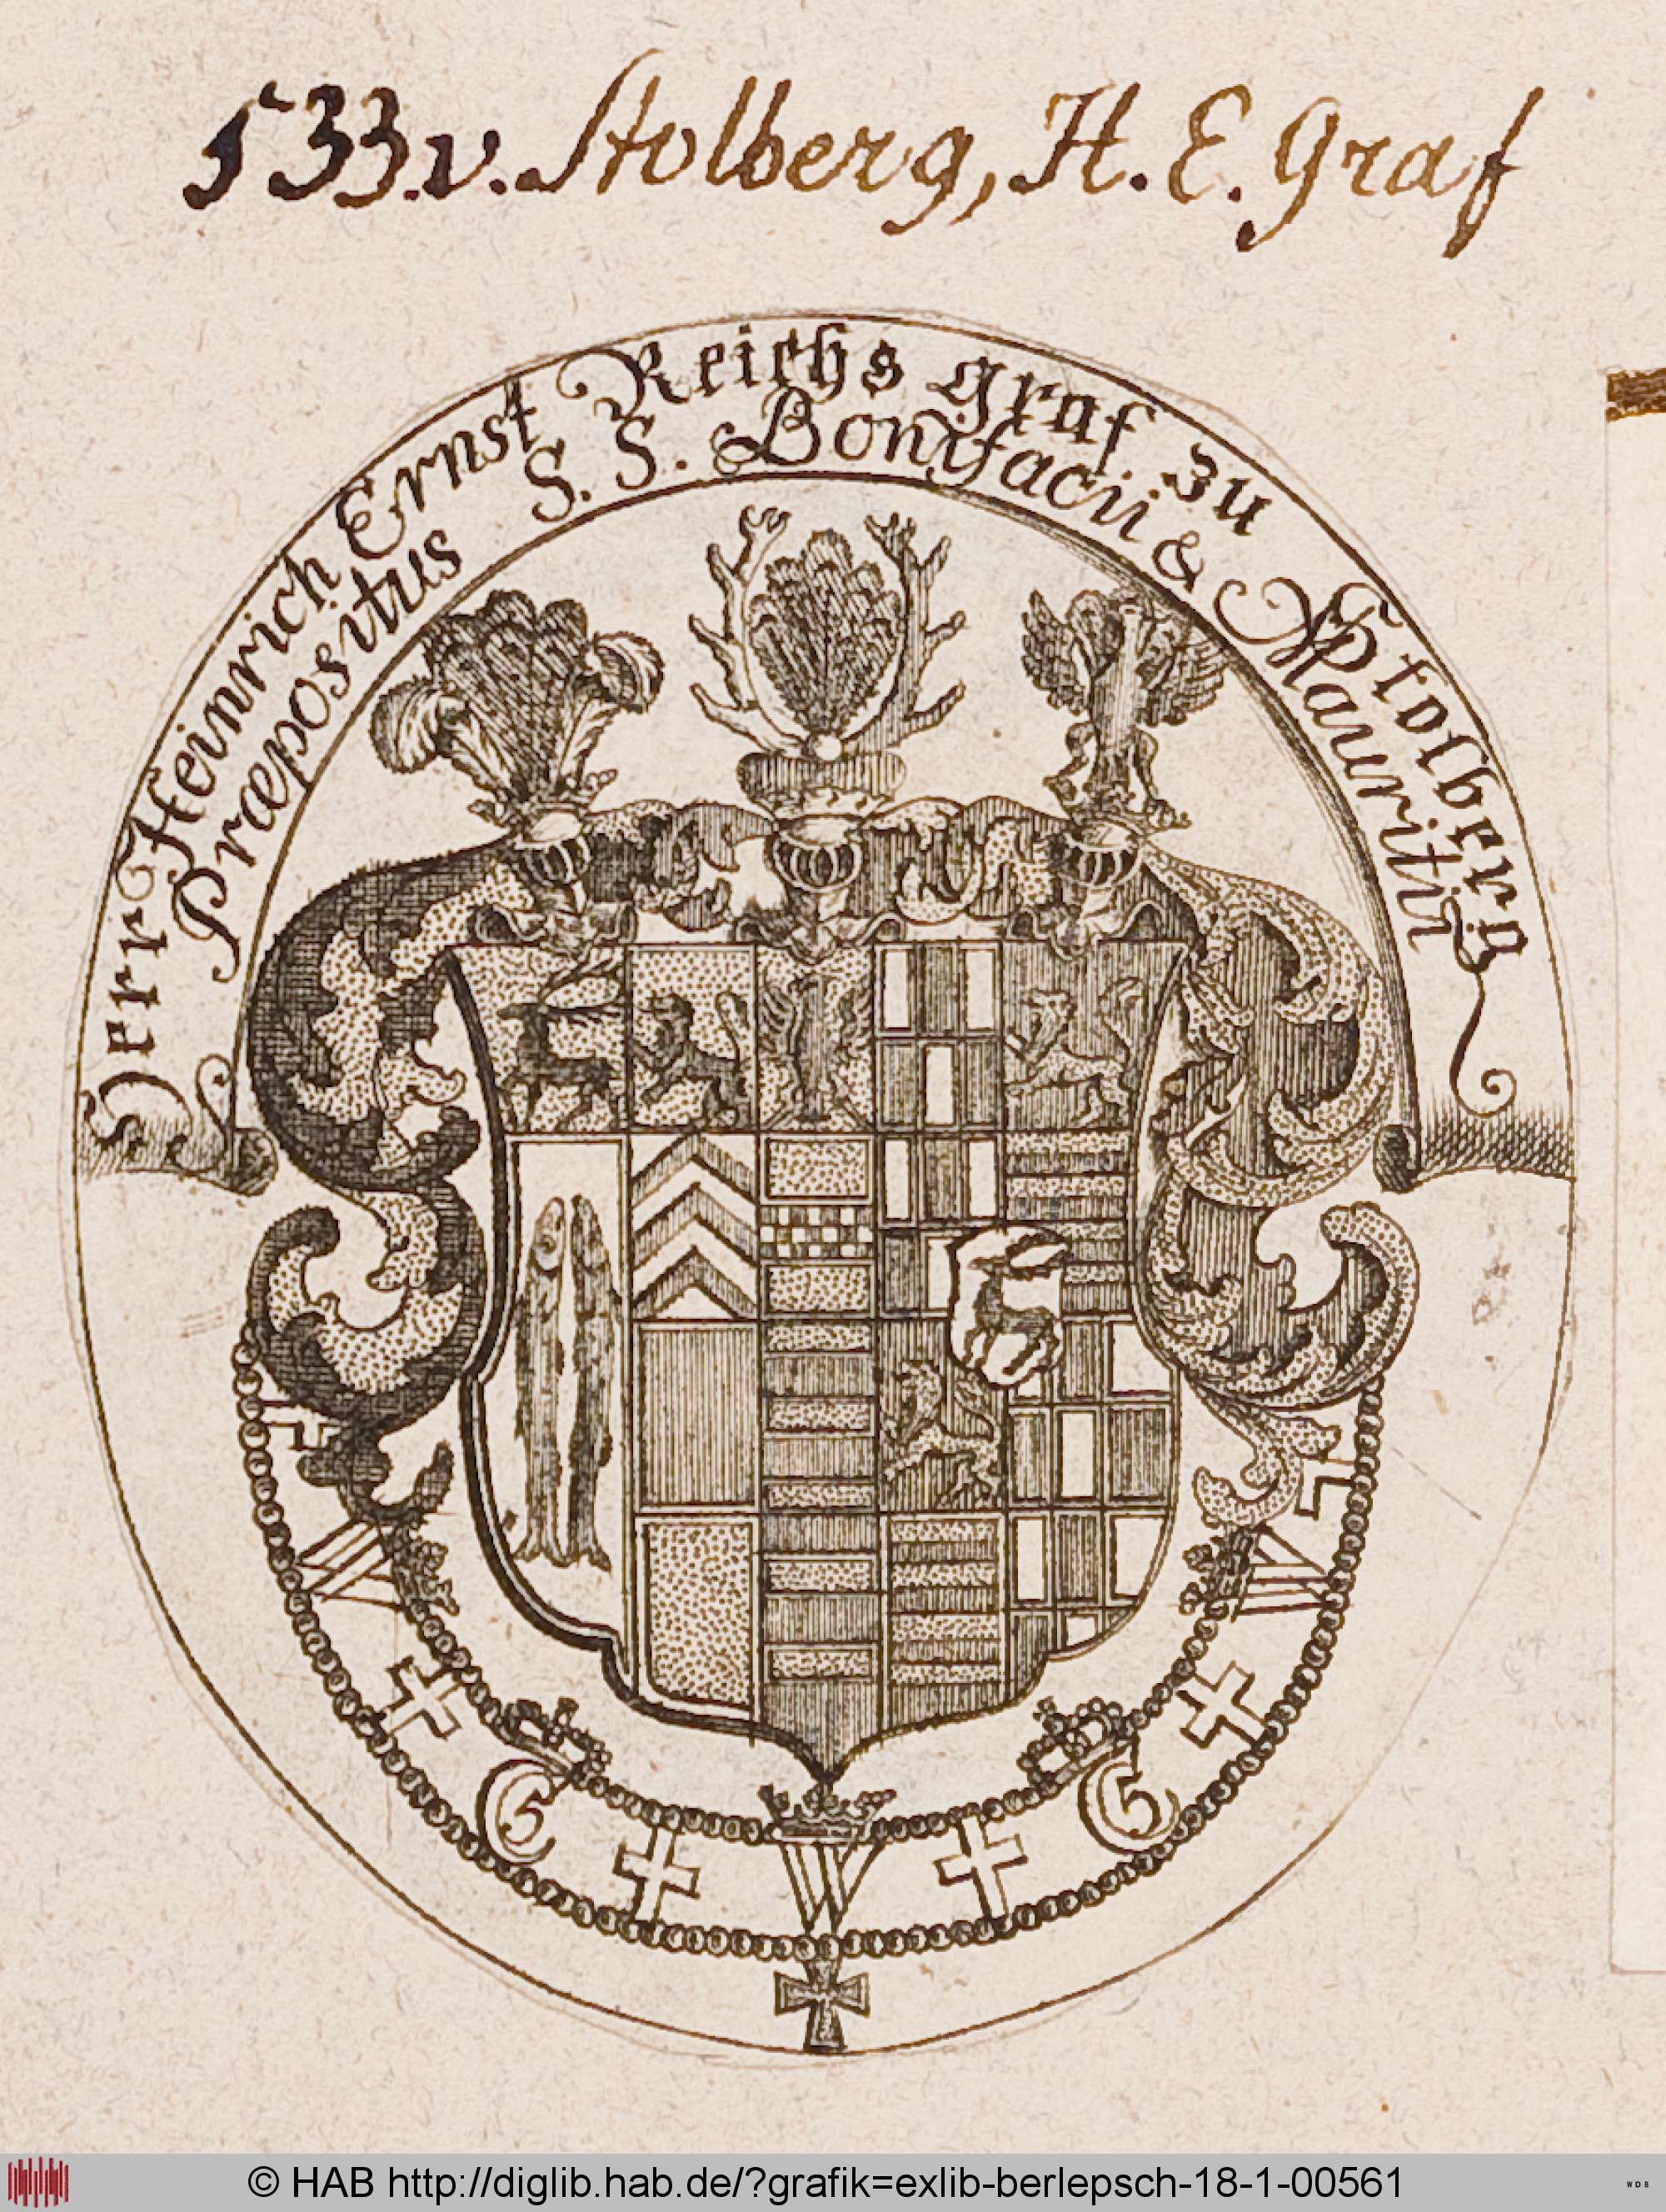 533. v. Stolberg, H. E. Graf
Herr Heinrich Ernst Reichs graf zu Stolberg
Præpositus S. S. Bonifacii & Mauritii
W G W G W
© HAB http://diglib.hab.de/?grafik=exlib-berlepsch-18-1-00561
WDB